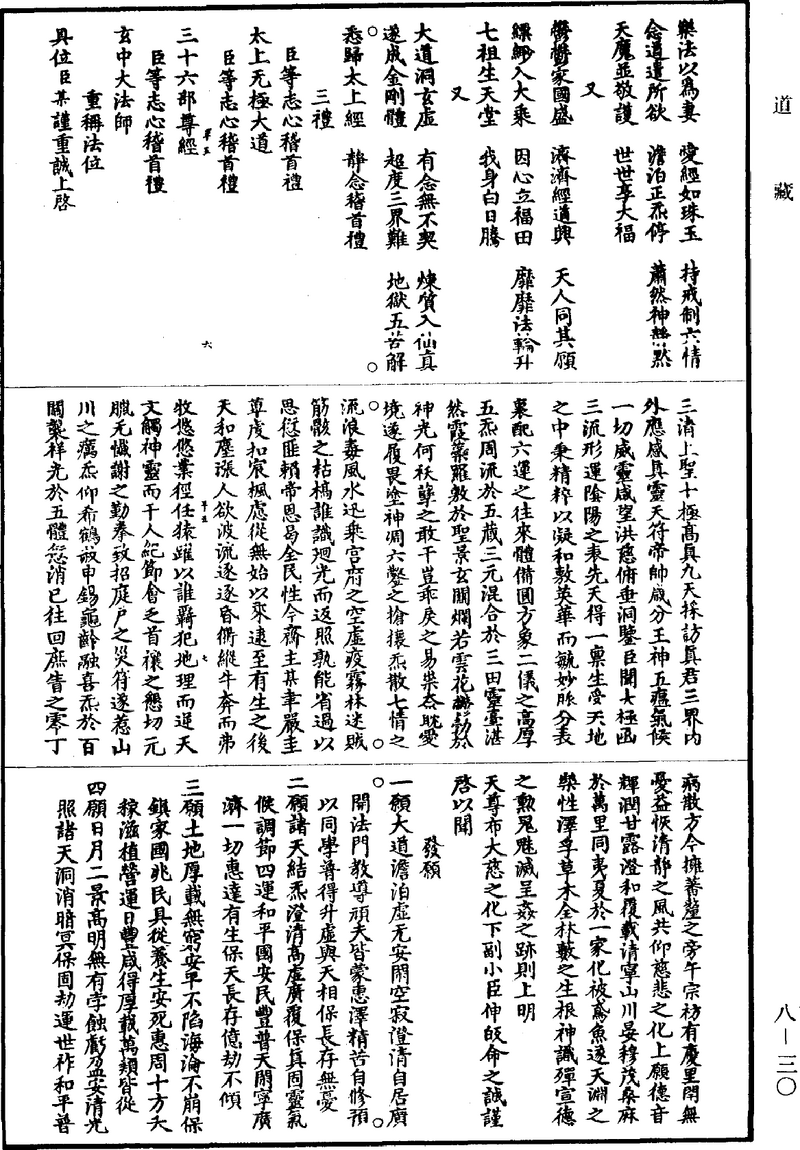 道藏
樂法以為妻　愛經如珠玉　持戒制六情
念道遣所欲　澹泊正炁停　蕭然神靜默
天魔並敬護　世世享大福
又
欝欝家國盛　濟濟經道興　天人同其願
縹緲入大乘　因心立福田　靡靡法輪升
七祖生天堂　我身白日騰
又
大道洞玄虛　有念無不契　煉質入仙真
遂成金剛體　超度三界難　地獄五苦解
悉歸太上經　靜念稽首禮
三禮
臣等志心稽首禮
太上无極大道
臣等志心稽首禮
三十六部尊經
臣等志心稽首禮
玄中大法師
重稱法位
具位臣某謹重誠上啓
六
三清上聖十極高真九天採訪真君三界內
外應感真靈天符帝帥歲分王神五瘟氣候
一切威靈咸望洪慈俯垂洞鑒臣聞太極函
三流形運陰陽之柬先天得一禀生受天地
之中秉精粹以凝和敷英華而毓妙脉分表
裏配六運之往來體備圓方象二儀之高厚
五炁周流於五藏三元混合於三田靈臺湛
然霞蘂羅敷於聖景玄關爛若雲花
神光何秋孽之敢干豈乖戾之易柴呇耽愛
境遂履畏塗神凋六鑿之搶攘炁散七情之
流浪毒風水迅乘宮府之空虛疫霧林迷賊
筋骸之枯槁誰識廻光而返照孰能省過以
思愆匪賴帝恩曷全民性今齋主某聿嚴圭
蓴虔扣宸楓慮從無始以來逮至有生之後
天和塵漲人欲波流逐逐昏衢縱牛奔而弗
牧悠悠業徑任猿躍以誰羈犯地理而逞天
文觸神靈而干人紀節會乏首禳之懇切元
臘无懺謝之勤拳致招庭戶之災符遂惹山
川之癘炁仰希鶴赦申錫龜齡融喜炁於百
關製祥光於五體愆消已往回庶眚之零丁
七
病散方今擁蕃釐之旁午宗祊有慶里閈無
憂益恢清靜之風共仰慈悲之化上願德音
輝潤甘露澄和覆載清寧山川晏穆茂桑麻
於萬里同夷夏於一家化被鳶魚遂天淵之
樂性澤孚草木全林藪之生根神識殫宣德
之勲鬼魅滅呈姦之跡則上明
天尊布大慈之化下副小臣伸皈命之誠謹
啓以聞
發願
一願大道澹泊虛无安閑空寂澄清自居廣
開法門教導頑夫皆蒙惠澤精苦自修預
以同學普得升虛與天相保長存無憂
二願諸天結炁澄清高虛廣覆保真固靈氣
候調節四運和平國安民豐普天閑寧廣
濟一切惠達有生保天長存億劫不傾
三願土地厚載無窮安平不陷海淪不崩保
鎮家國兆民具從養生安死惠周十方大
稼滋植營運日豐咸得厚載萬類皆從
四願日月二景高明無有孛蝕虧盈安清光
照諸天洞消暗冥保固劫運世祚和平普
八—三〇